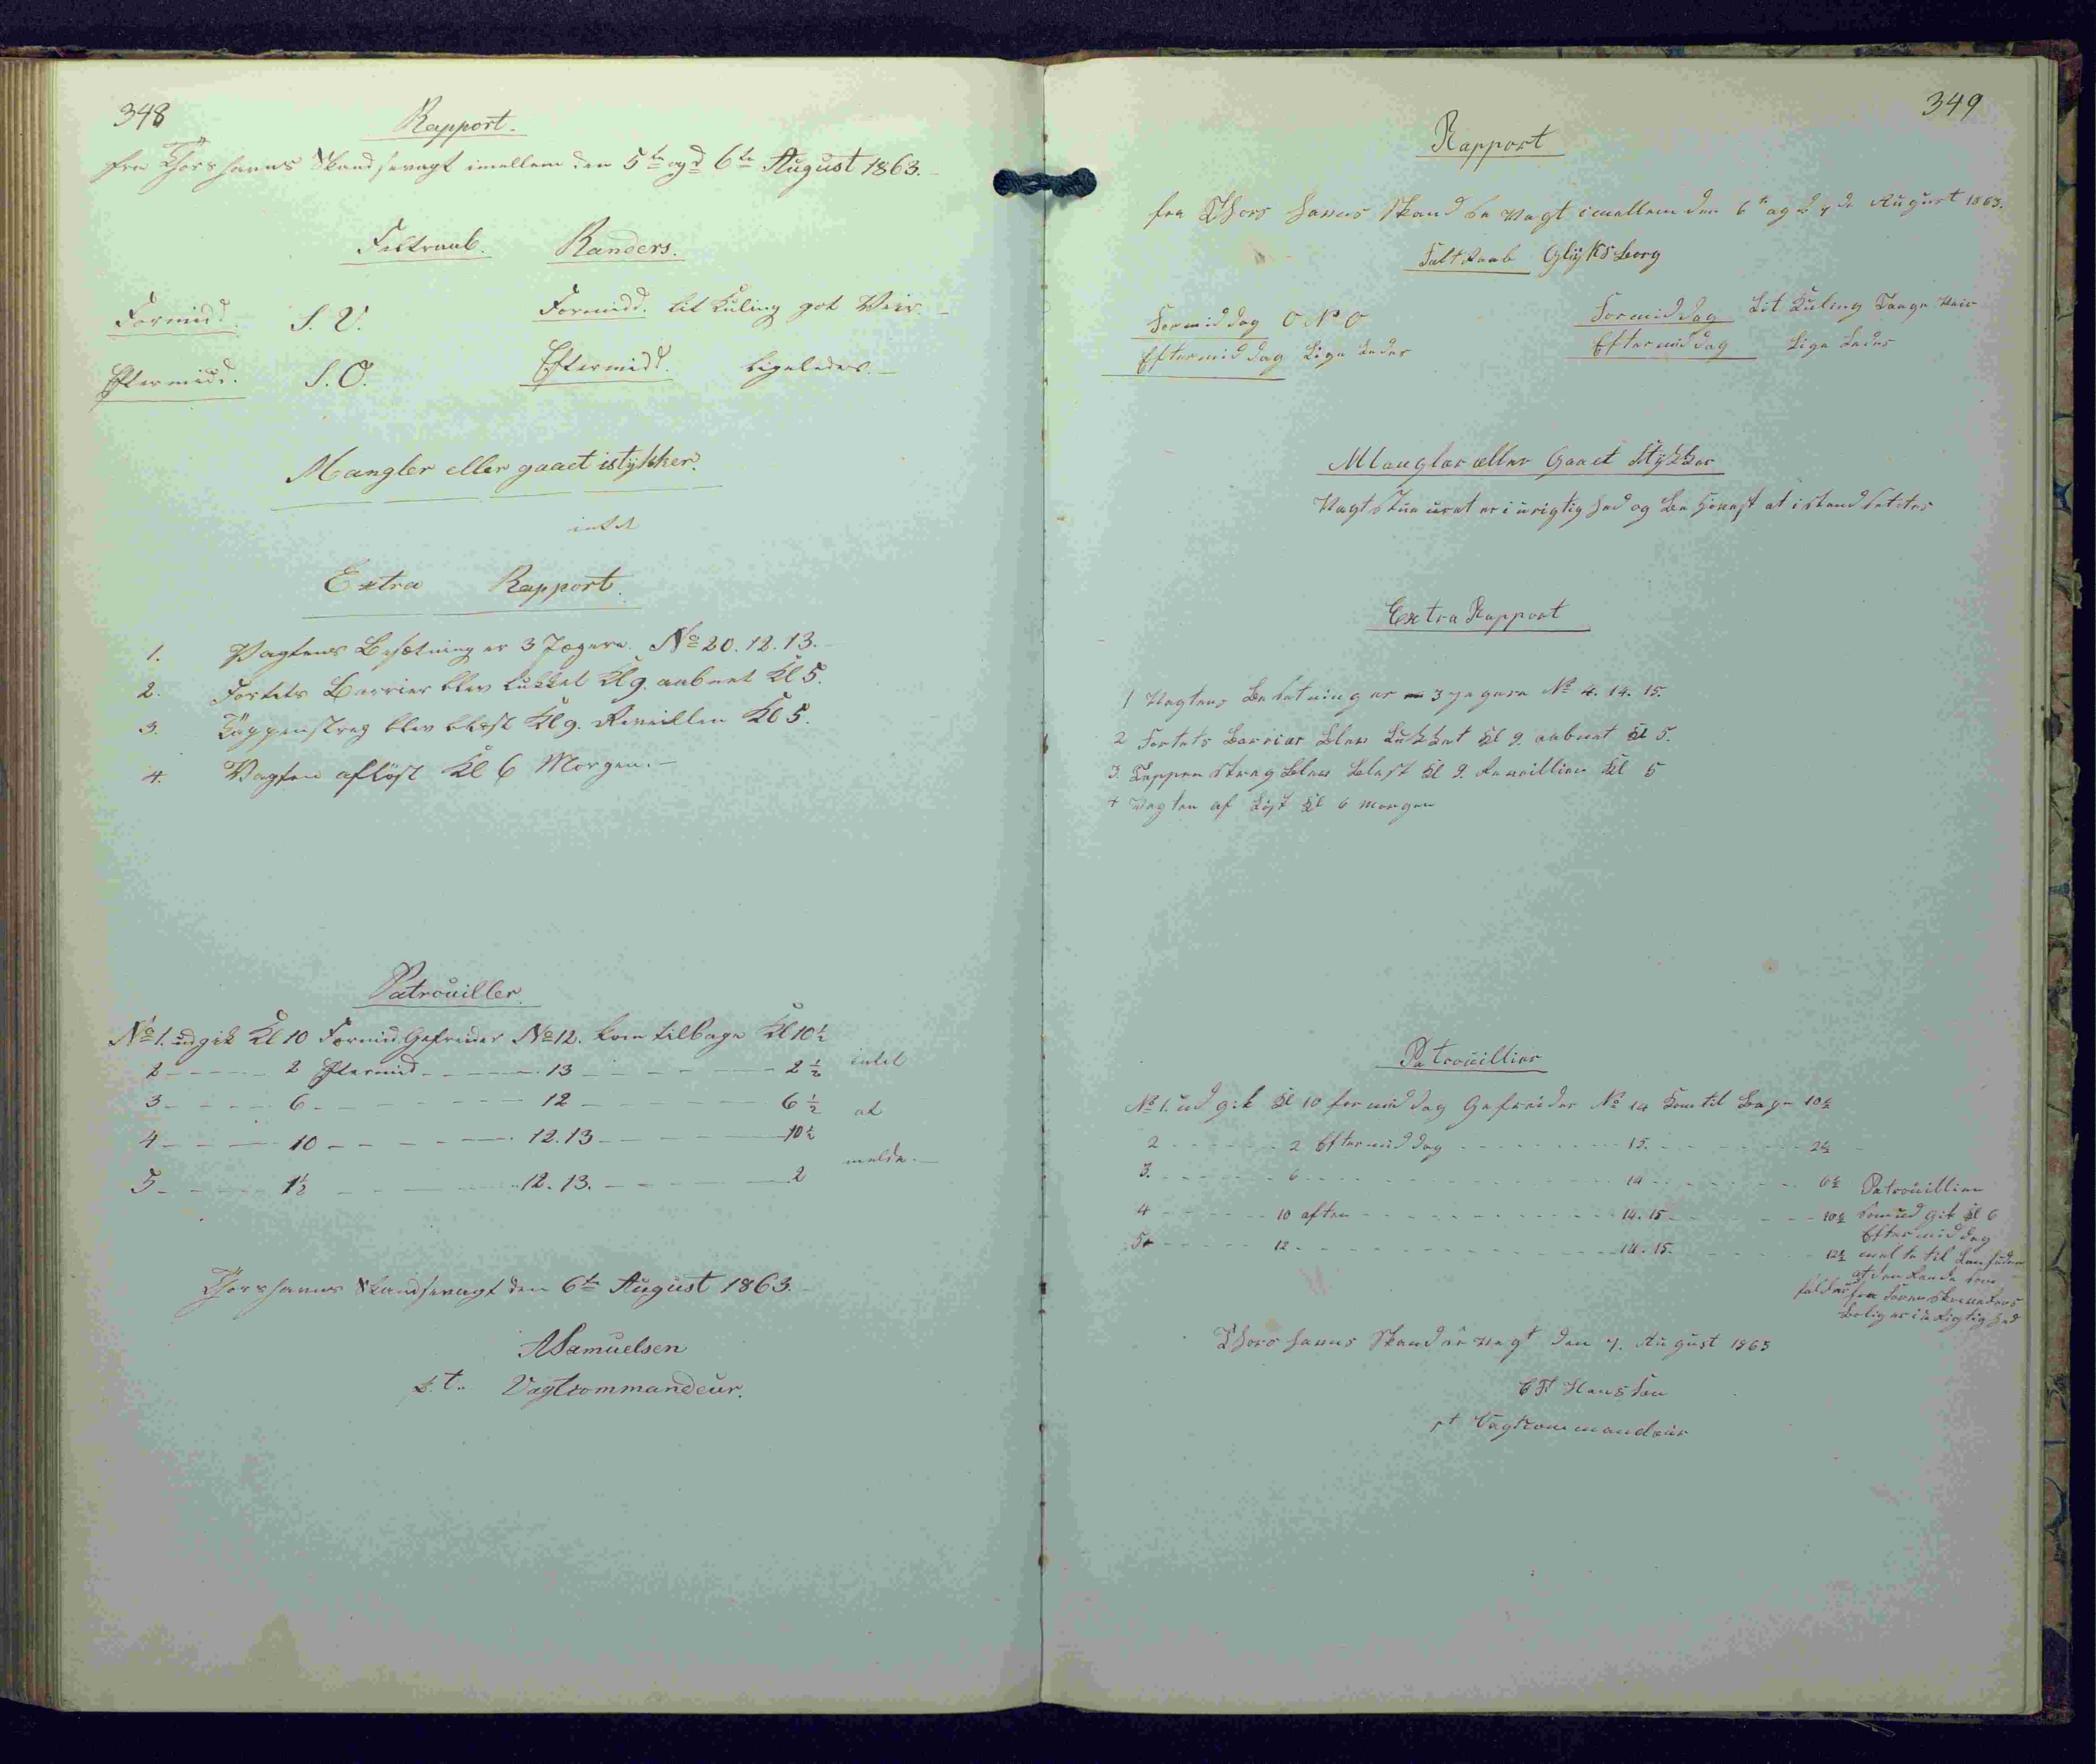 348
Rapport.
fra Thorshavns Skandsevagt imellem den 5te og d 6te August 1863.
Feltraab. Randers.
Formidd. S.V. Formidd. lit Kuling got Veir.
Eftermidd. S.O. Eftermidd. ligeledes.
Mangler eller gaaet istykker.
intet
Extra Rapport.
1. Vagtens Besætning er 3 Jægere. No 20. 12. 13.
2. Fortets Barrier blev lukket Kl 9. aabnet Kl 5.
3. Tappenstreg blev blæst Kl 9. Reveillen Kl 5.
4. Vagten afløst Kl 6 Morgen.
Patrouiller.
No 1. udgik Kl 10 Formid. Gefreider No 12. kom tilbage Kl 10½
2 - - - - 2 Eftermid - - - - 13 - - - - 2½ intet
3 - - - - 6 - - - - 12 - - - - 6½ at
4 - - - - 10 - - - - 12. 13 - - - - 10½
5 - - - - 1½ - - - - 12. 13. - - - - 2 melde.
Thorshavns Skandsevagt den 6te August 1863.
A Samuelsen
p.t. Vagtcommandeur.
349
Rapport
fra Thors havns Skand se Vagt imellem den 6te og d 7de August 1863.
Feltraab Glyksborg
Formiddag O N O Formiddag Lit Kuling Taage Veir
Eftermiddag Lige Ledes Eftermiddag Lige Ledes
Mangler eller Gaaet Stykker
Vagt Stue uret er i urigtig hed og at istand settes
Extra Rapport
1 Vagtens Besetning er 3 jegere No 4. 14. 15.
2 Fortets Barrier blev Lukket Kl 9. aabnet Kl 5.
3. Tappen streg blev blest Kl 9. Reveillien Kl 5
4 Vagten af Løst Kl 6 morgen
Patrouillier
No 1. ud gik Kl 10 formiddag Gefreider No 14 Kom til Bage 10½
2 - - - - 2 Eftermiddag - - - - 15. - - - - 2½
3. - - - - 6 - - - - 14 - - - - 6½ Patrouillien
4 - - - - 10 aften - - - - 14. 15 - - - - 10½ som ud gik Kl 6
Eftermiddag
5 - - - - 12 - - - - 14. 15. - - - - 12½ melte til
at den Rende som
falder fra
Bolig er i urigtig hed
Thors havns Skandse vagt den 7. August 1863
C F Hanssen
pt Vagtkommandeur